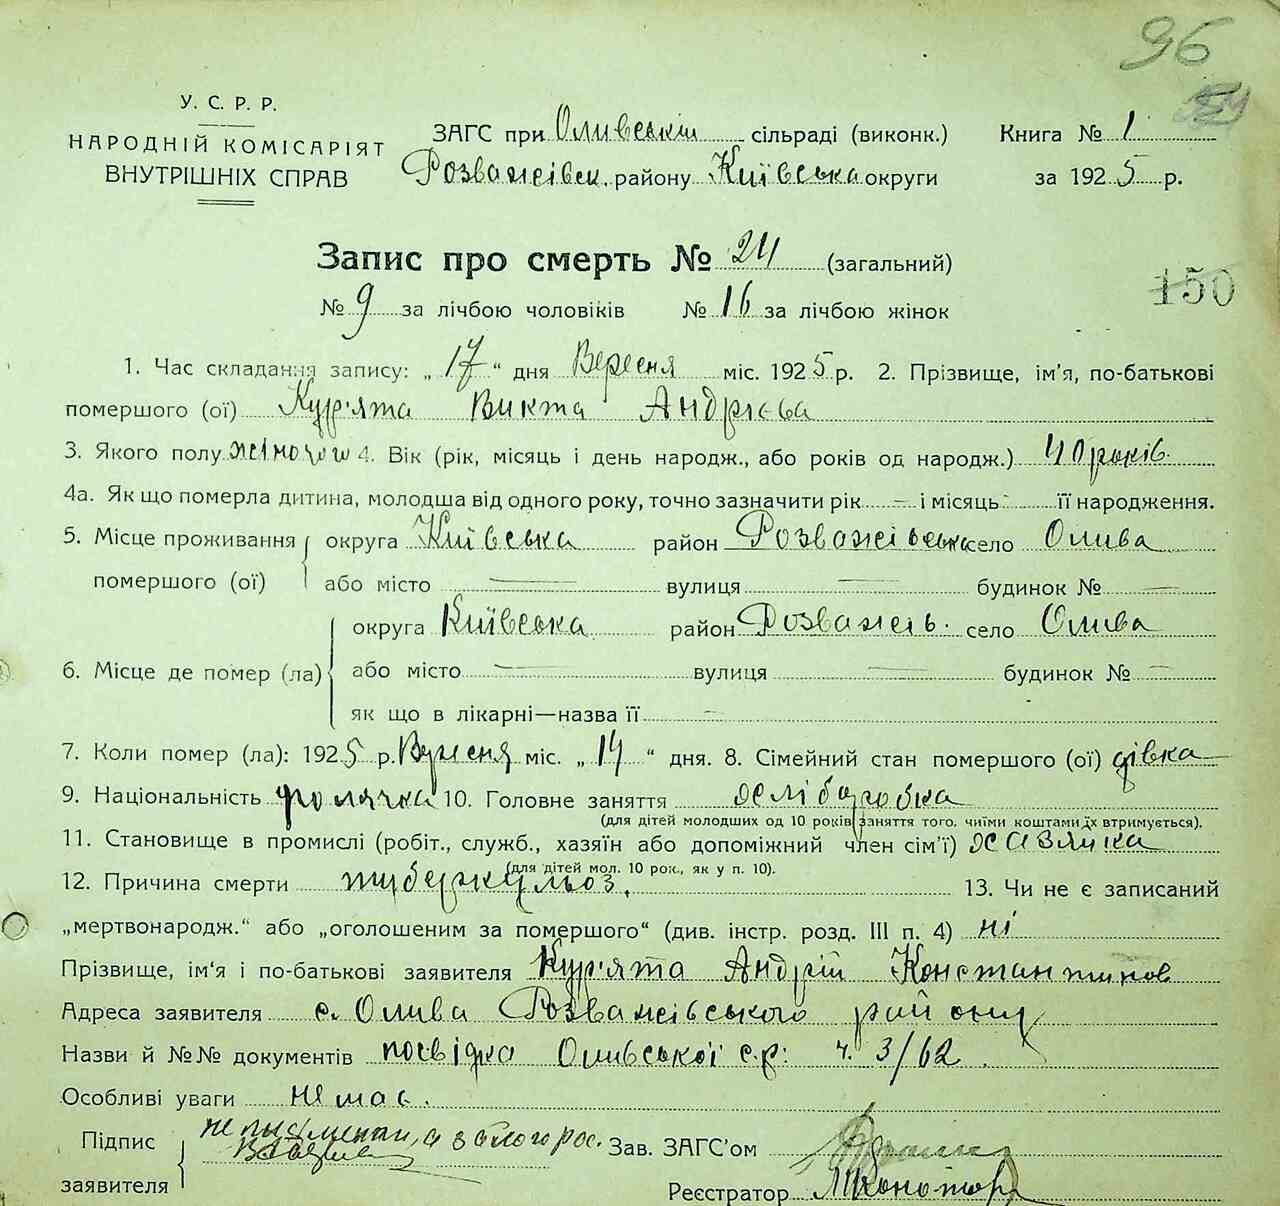 96
У. С. Р. Р.
НАРОДНІЙ КОМІСАРІЯТ
ВНУТРІШНІХ СПРАВ
ЗАГС при Оливській сільраді (виконк.)
Розважівськ. району Київська округи
Книга № 1
за 1925 р.
Запис про смерть № 24 (загальний)
№ 9 за лічбою чоловіків № 16 за лічбою жінок
150
1. Час складання запису: „17“ дня Вересня міс. 1925 р. 2. Прізвище, ім'я, по-батькові
помершого (ої) Кур'ята Викта Андрієва
3. Якого полу жіночого 4. Вік (рік, місяць і день народж., або років од народж.) 40 років.
4а. Як що померла дитина, молодша від одного року, точно зазначити рік — і місяць — її народження.
5. Місце проживання помершого (ої) округа Київська район Розважівська село Олива
або місто — вулиця — будинок № —
6. Місце де помер (ла) округа Київська район Розважів. село Олива
або місто — вулиця — будинок № —
як що в лікарні—назва її —
7. Коли помер (ла): 1925 р. Вересня міс. „14“ дня. 8. Сімейний стан помершого (ої) дівка
9. Національність полячка 10. Головне заняття хліборобка
(для дітей молодших од 10 років заняття того, чиїми коштами їх втримується).
11. Становище в промислі (робіт., служб., хазяїн або допоміжний член сім'ї) хазяйка
(для дітей мол. 10 рок., як у п. 10).
12. Причина смерти туберкульоз. 13. Чи не є записаний
„мертвонародж.“ або „оголошеним за помершого“ (див. інстр. розд. III п. 4) ні
Прізвище, ім'я і по-батькові заявителя Кур'ята Андрій Константинов
Адреса заявителя с. Олива Розважівського району
Назви й №№ документів посвідка Оливської с.р. ч. 3/62.
Особливі уваги немає.
Підпис заявителя неписьменний, а за його рос.
Зав. ЗАГС'ом
Реєстратор